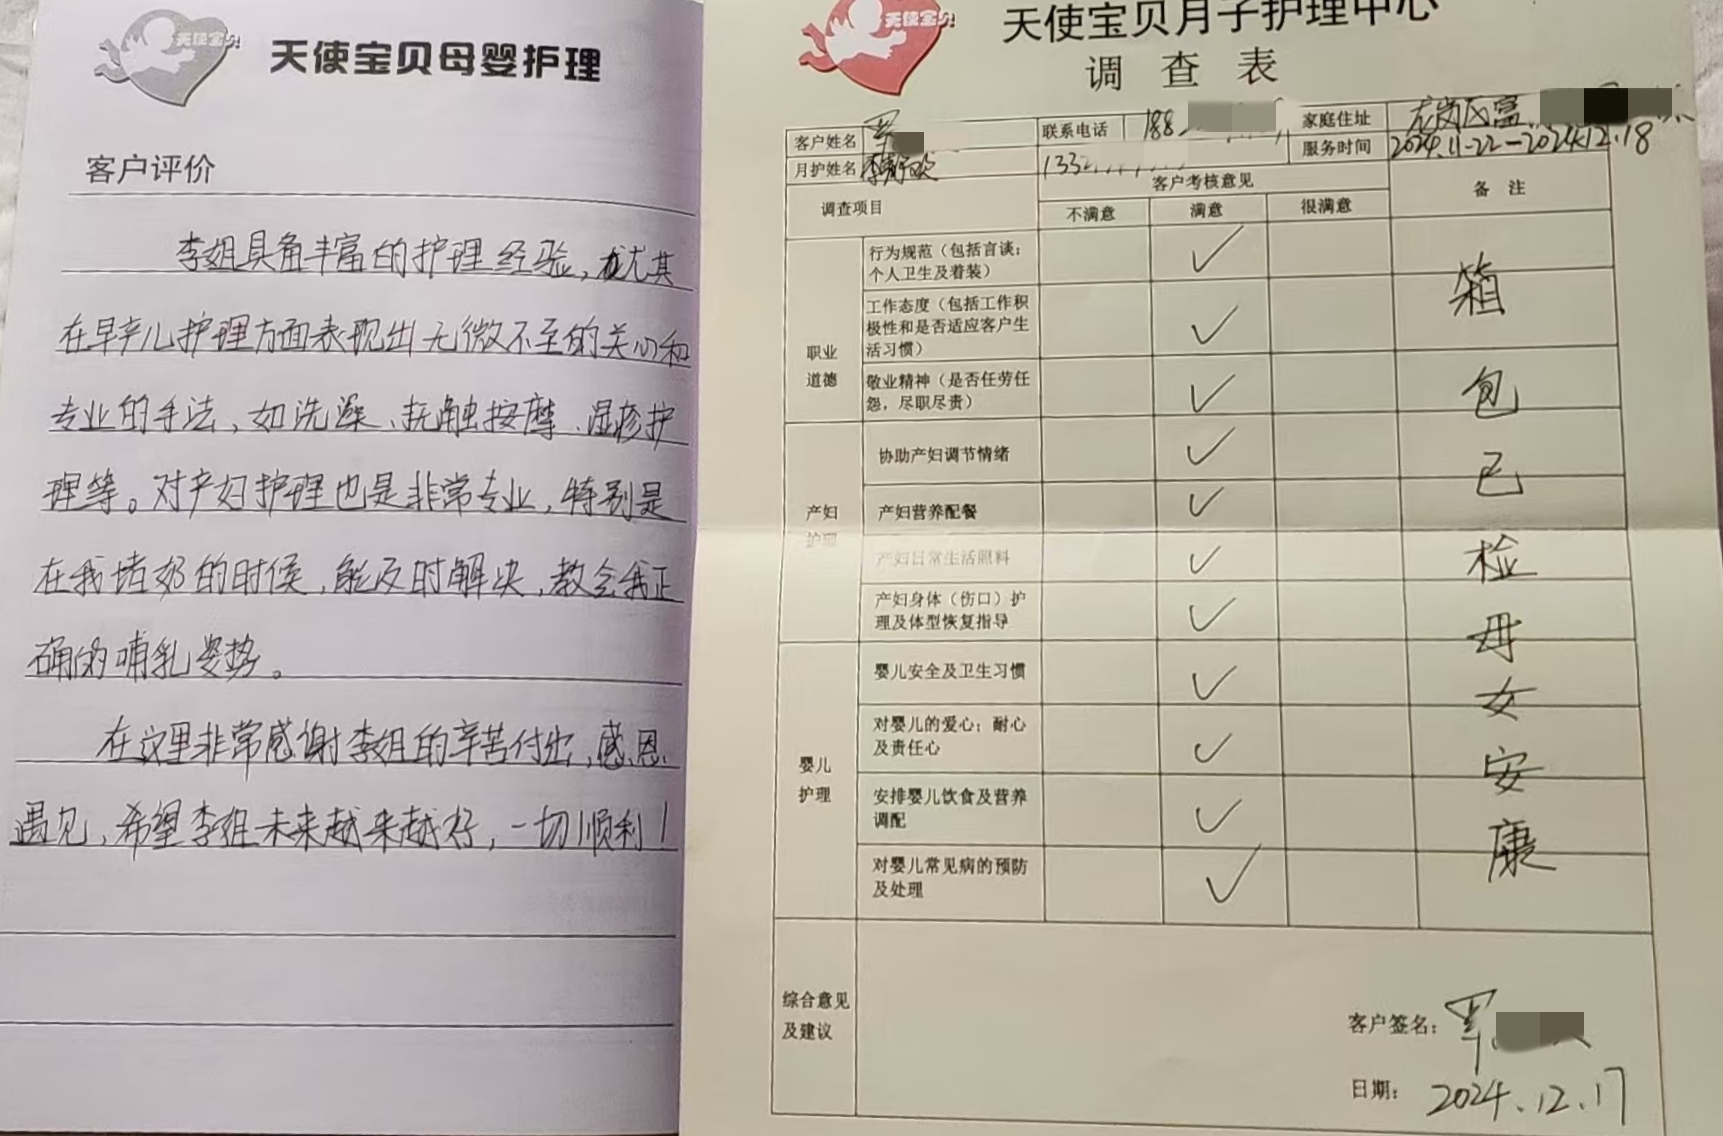 天使宝贝
天使宝贝母婴护理
客户评价
李姐具备丰富的护理经验，尤其
在早产儿护理方面表现出无微不至的关心和
专业的手法、如洗澡、抚触按摩、湿疹护
理等。对产妇护理也是非常专业，特别是
在我堵奶的时候，能及时解决，教会我正
确的哺乳姿势。
在这里非常感谢李姐的辛苦付出，感恩
遇见，希望李姐未来越来越好，一切顺利！
天使宝贝
天使宝贝月子护理中心
调查表
客户姓名 覃 联系电话 188 家庭住址 龙岗区富
月护姓名 1332 服务时间 2024.11-22-2024.12.18
调查项目 客户考核意见 备注
不满意 满意 很满意
职业
道德
行为规范（包括言谈；
个人卫生及着装）
工作态度（包括工作积
极性和是否适应客户生
活习惯）
敬业精神（是否任劳任
怨，尽职尽责）
产妇
护理
协助产妇调节情绪
产妇营养配餐
产妇日常生活照料
产妇身体（伤口）护
理及体型恢复指导
婴儿
护理
婴儿安全及卫生习惯
对婴儿的爱心；耐心
及责任心
安排婴儿饮食及营养
调配
对婴儿常见病的预防
及处理
箱包已检母女安康
综合意见
及建议
客户签名：覃
日期：2024.12.17